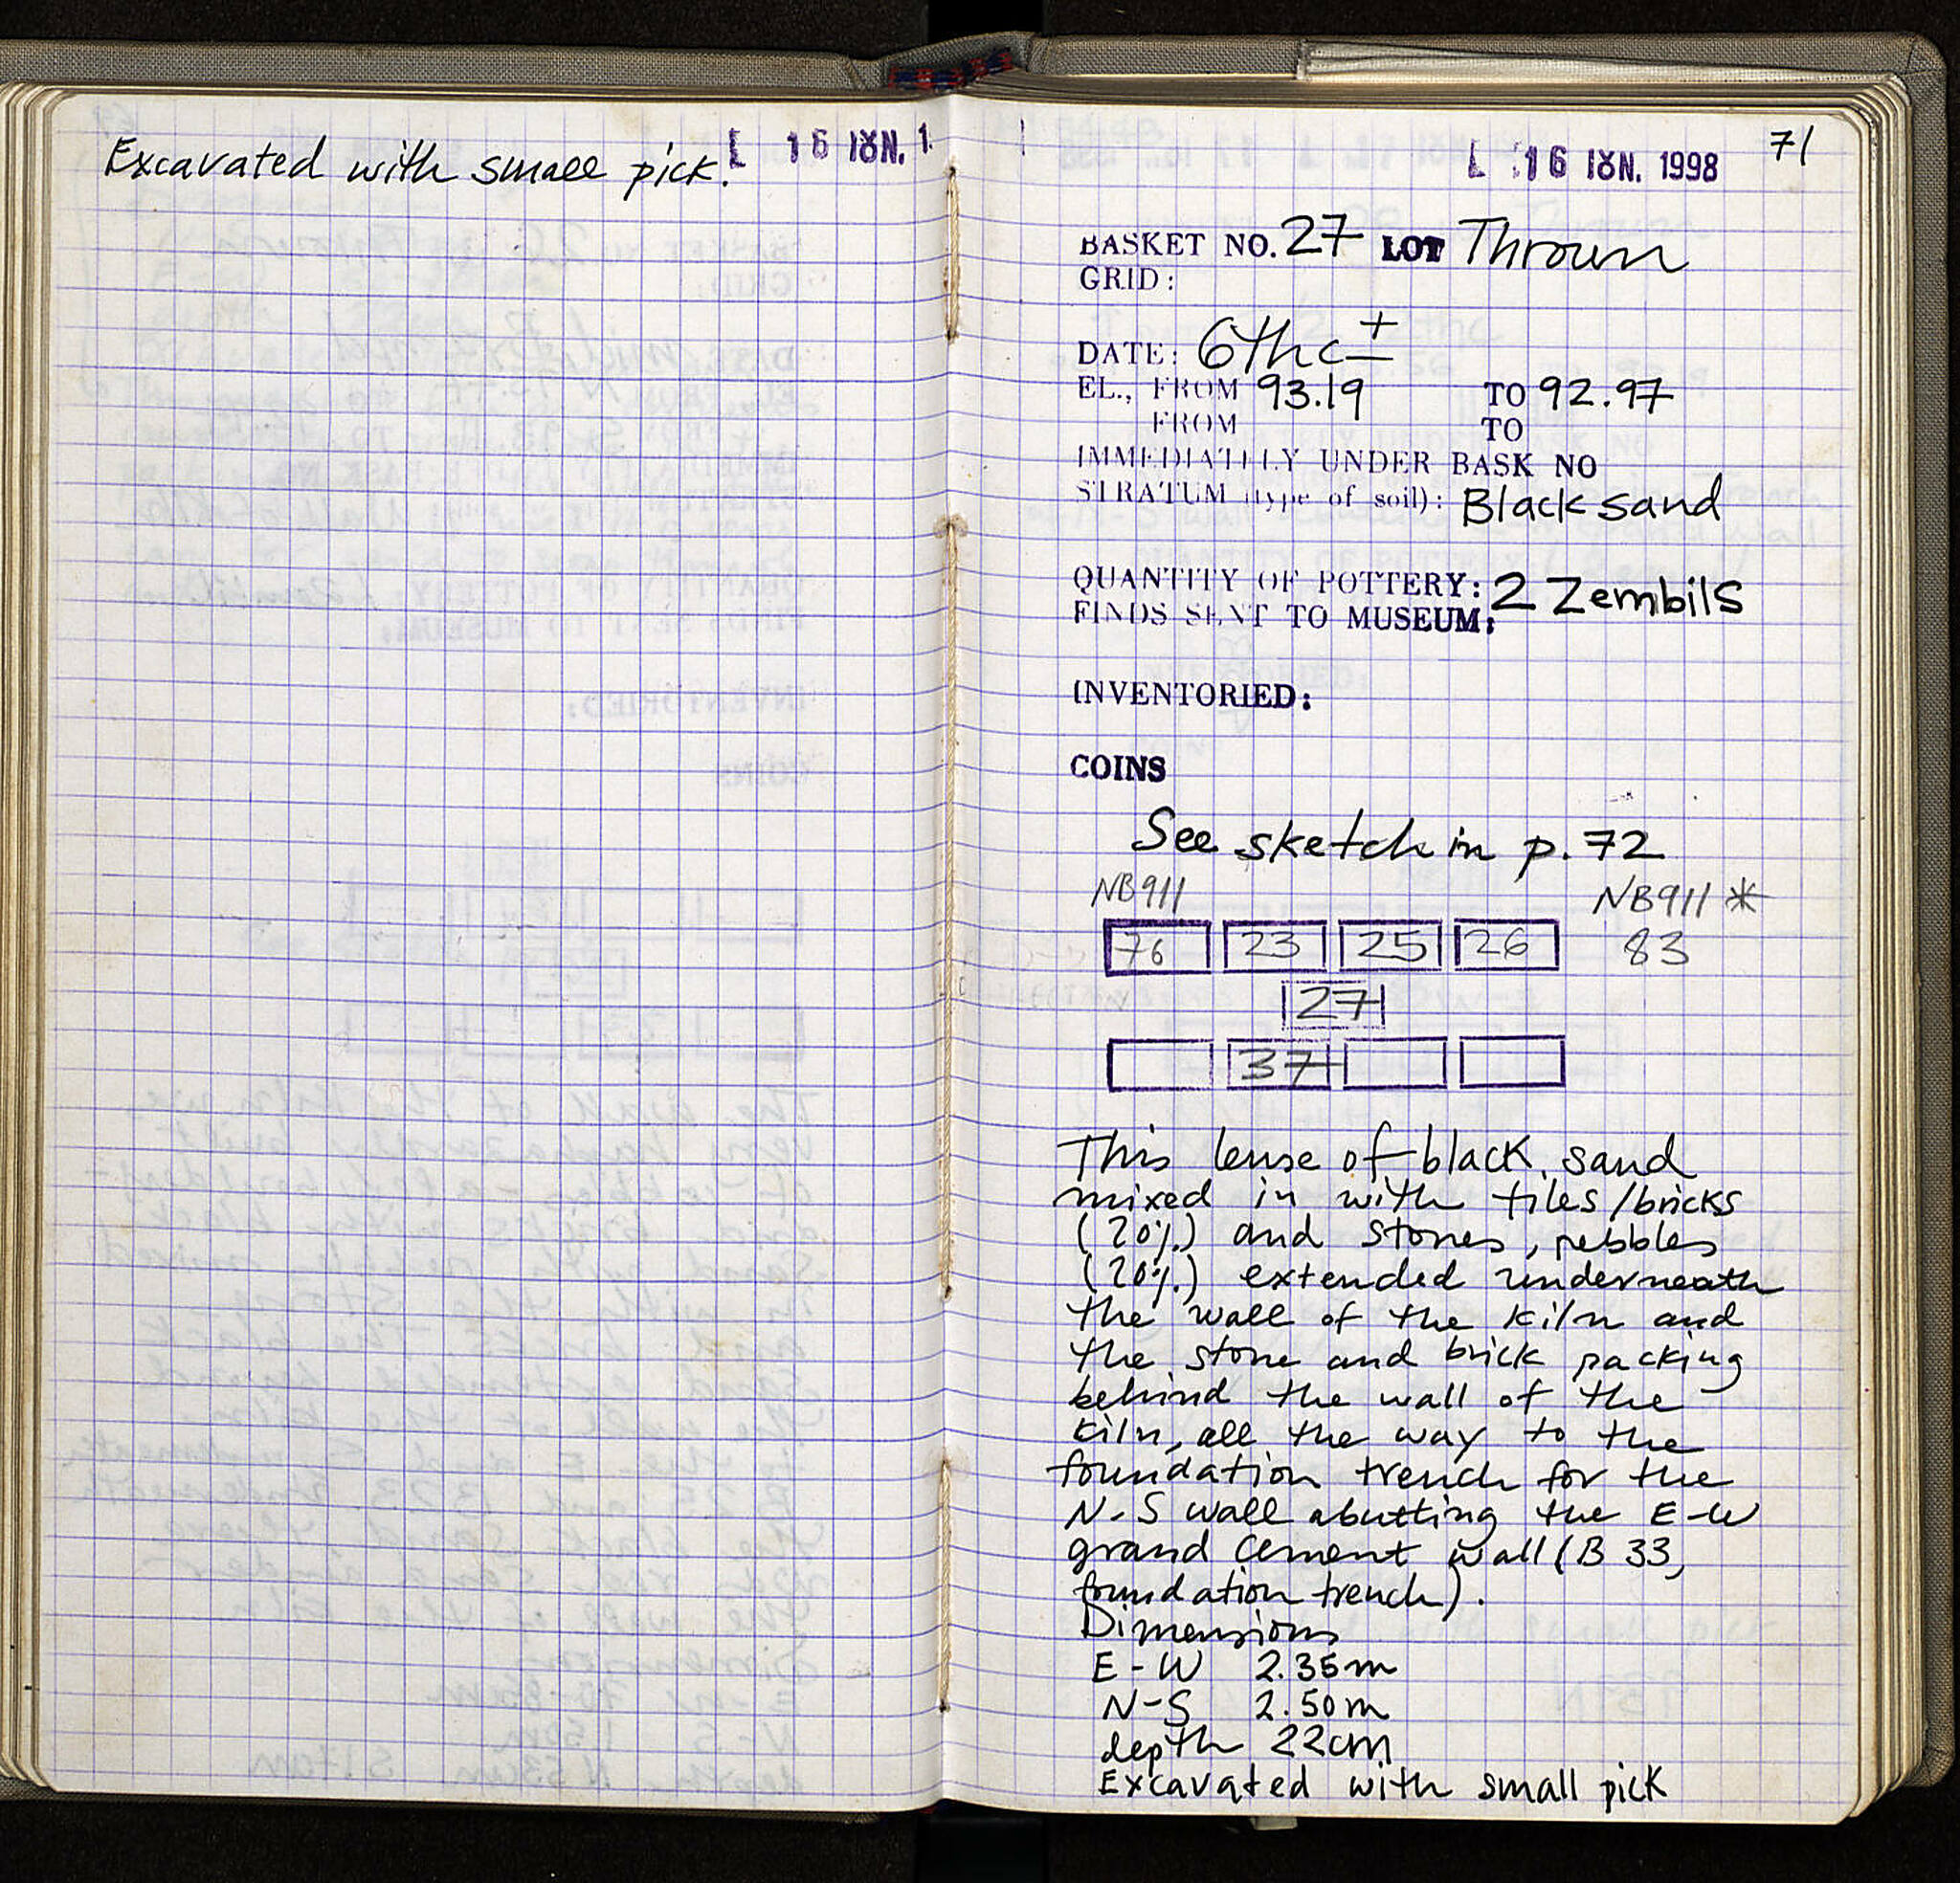 Excavated with small pick.
16 ΙȢΝ. 1
16 ΙȢΝ. 1998
71
BASKET NO. 27 LOT Thrown
GRID:
DATE: 6thc ±
EL., FROM 93.19 TO 92.97
FROM TO
IMMEDIATELY UNDER BASK NO
STRATUM (type of soil): Black sand
QUANTITY OF POTTERY: 2 Zembils
FINDS SENT TO MUSEUM:
INVENTORIED:
COINS
See sketch in p. 72
NB911 NB911 *
76 23 25 26 83
27
37
This lense of black sand
mixed in with tiles/bricks
(20%) and stones, pebbles
(20%) extended underneath
the wall of the kiln and
the stone and brick packing
behind the wall of the
kiln, all the way to the
foundation trench for the
N-S wall abutting the E-W
grand cement wall (B 33,
foundation trench).
Dimensions
E-W 2.35m
N-S 2.50m
depth 22cm
Excavated with small pick